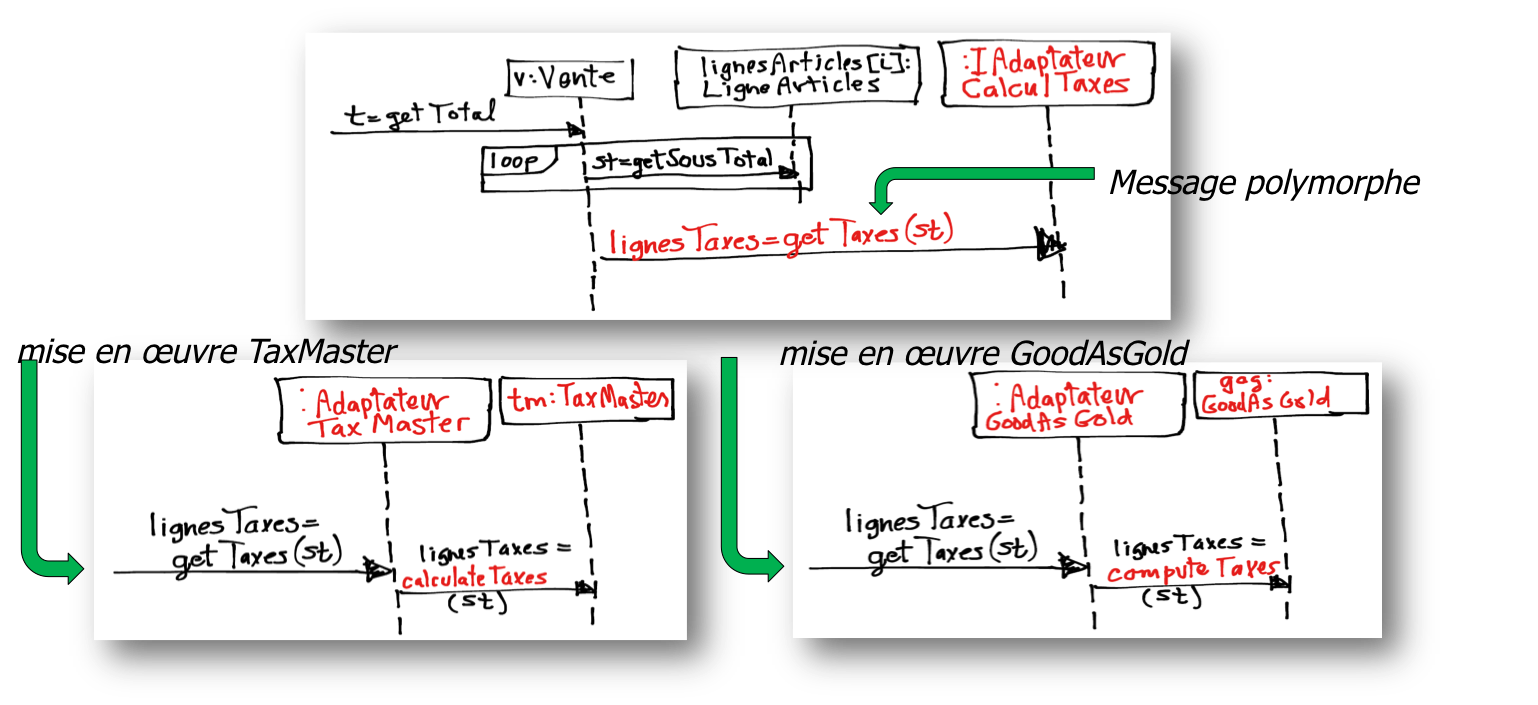 v:Vente
lignesArticles[i]:
LigneArticles
:IAdaptateur
CalculTaxes
t=getTotal
loop
st=getSousTotal
Message polymorphe
lignesTaxes=getTaxes(st)
mise en œuvre TaxMaster
:Adaptateur
TaxMaster
tm:TaxMaster
lignesTaxes=
getTaxes(st)
lignesTaxes=
calculateTaxes
(st)
mise en œuvre GoodAsGold
:Adaptateur
GoodAsGold
gag:
GoodAsGold
lignesTaxes=
getTaxes(st)
lignesTaxes=
computeTaxes
(st)